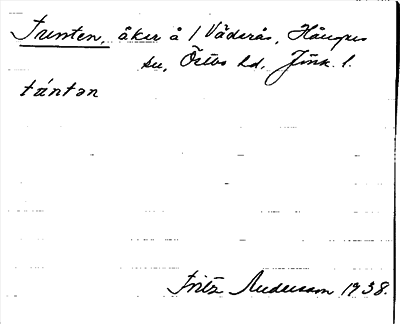 Tunten, åker å 1 Väderås, Hånger
sn, Östbo hd, Jönk. l.
tántən
Fritz Anderson 1938.